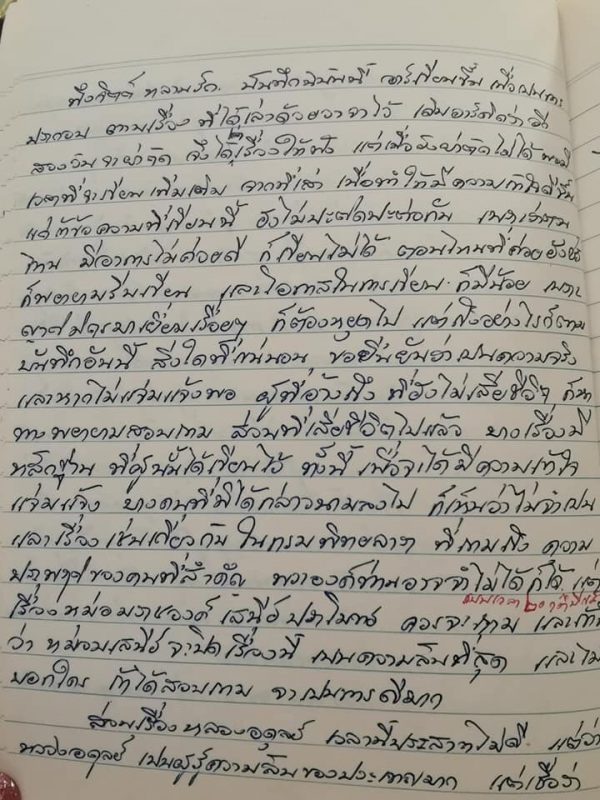 ถึงจิตต์ หลานรัก. บันทึกฉบับนี้ อาร์เขียนขึ้น เพื่อเป็นการ
ประกอบ ตามเรื่อง ที่ได้เล่าด้วยวาจาไว้ เดิมอาร์คิดว่าอีก
สองวันจะผ่าตัด จึงได้เรื่องให้ฟัง แต่เมื่อยังผ่าตัดไม่ได้ พอมี
เวลาที่จะเขียน เพิ่มเติม จากที่เล่า เพื่อทำให้มีความเข้าใจดีขึ้น
แต่ข้อความที่เขียนนี้ ยังไม่ปะติดปะต่อกัน เพราะตอน
ไหน มีอาการไม่ค่อยดี ก็เขียนไม่ได้ ตอนไหนที่ค่อยยังชั่ว
ก็พยายามรีบเขียน และโอกาสในการเขียน ก็มีน้อย เพราะ
ญาติมิตรมาเยี่ยมเรื่อยๆ ก็ต้องหยุดไป แต่ถึงอย่างไรก็ตาม
บันทึกอันนี้ สิ่งใดที่แน่นอน ขอยืนยันว่าเป็นความจริง
และหากไม่แจ่มแจ้งพอ ผู้ที่อ้างถึง ที่ยังไม่เสียชีวิต ก็หา
ทางพยายามสอบถาม ส่วนที่เสียชีวิตไปแล้ว บางเรื่องมี
หลักฐาน ที่ผู้นั้นได้เขียนไว้ ทั้งนี้ เพื่อจะได้มีความเข้าใจ
แจ่มแจ้ง บางคนที่มิได้กล่าวนามลงไป ก็เห็นว่าไม่จำเป็น
และเรื่องเช่นเดียวกัน ในกรมพิทยลาภฯ ที่ถามถึง ความ
ประพฤติของคนที่สำคัญ พระองค์ท่านอาจจำไม่ได้ก็ได้ แต่
เป็นเวลา ๒๐ กว่าปีแล้ว
เรื่องหม่อมราชวงศ์ เสนีย์ ปราโมช ควรจะถาม และเข้าใจ
ว่า หม่อมเสนีย์ จะปิดเรื่องนี้ เป็นความลับที่สุด และไม่
บอกใคร ถ้าได้สอบถาม จะเป็นการดีมาก
ส่วนเรื่องหลวงอดุลย์ เวลานี้ประสาทไม่ดี แต่ว่า
หลวงอดุลย์ เป็นผู้รู้ความลับของประเทศมาก แต่เชื่อว่า